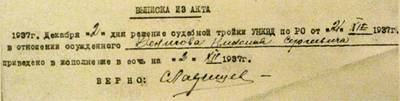 ВЫПИСКА ИЗ АКТА
1937г. Декабря "2" дня решение судебной тройки УНКВД по РО от "21/ XI 1937г.
в отношении осужденного Николая Сергеевича
приведено в исполнение в ночь на "2" XII 1937г.
ВЕРНО: